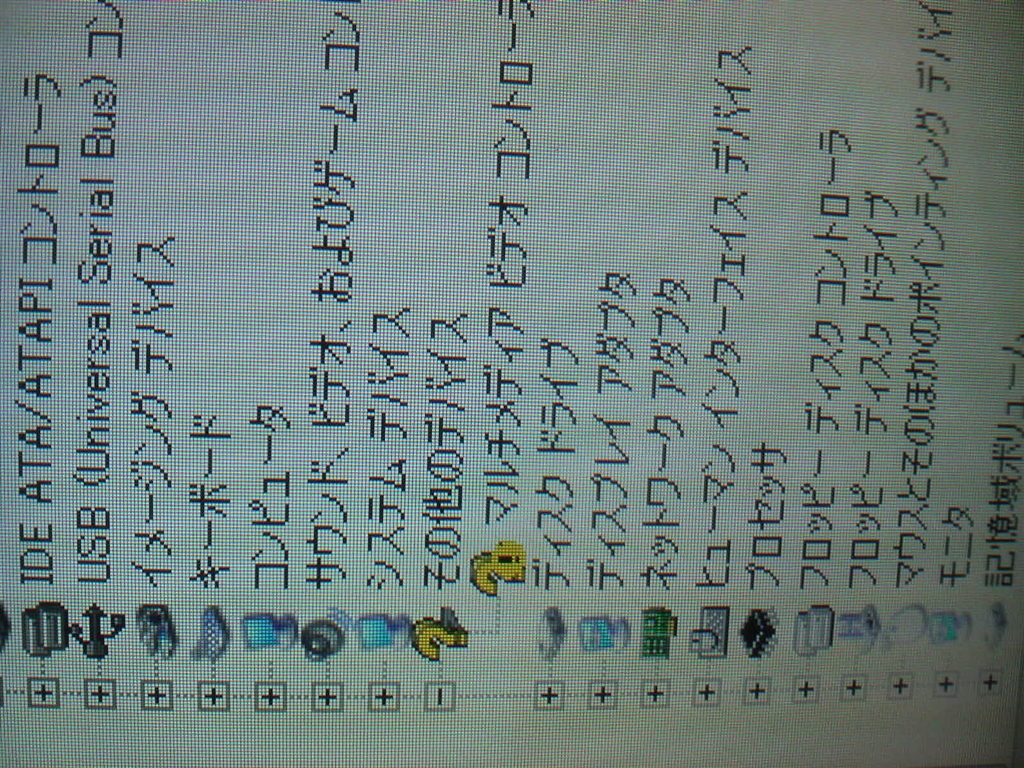 IDE ATA/ATAPI コントローラ
USB (Universal Serial Bus) コン
イメージング デバイス
キーボード
コンピュータ
サウンド、ビデオ、およびゲーム コン
システム デバイス
その他のデバイス
マルチメディア ビデオ コントローラ
ディスク ドライブ
ディスプレイ アダプタ
ネットワーク アダプタ
ヒューマン インターフェイス デバイス
プロセッサ
フロッピー ディスク コントローラ
フロッピー ディスク ドライブ
マウスとそのほかのポインティング デバイ
モニタ
記憶域ボリューム